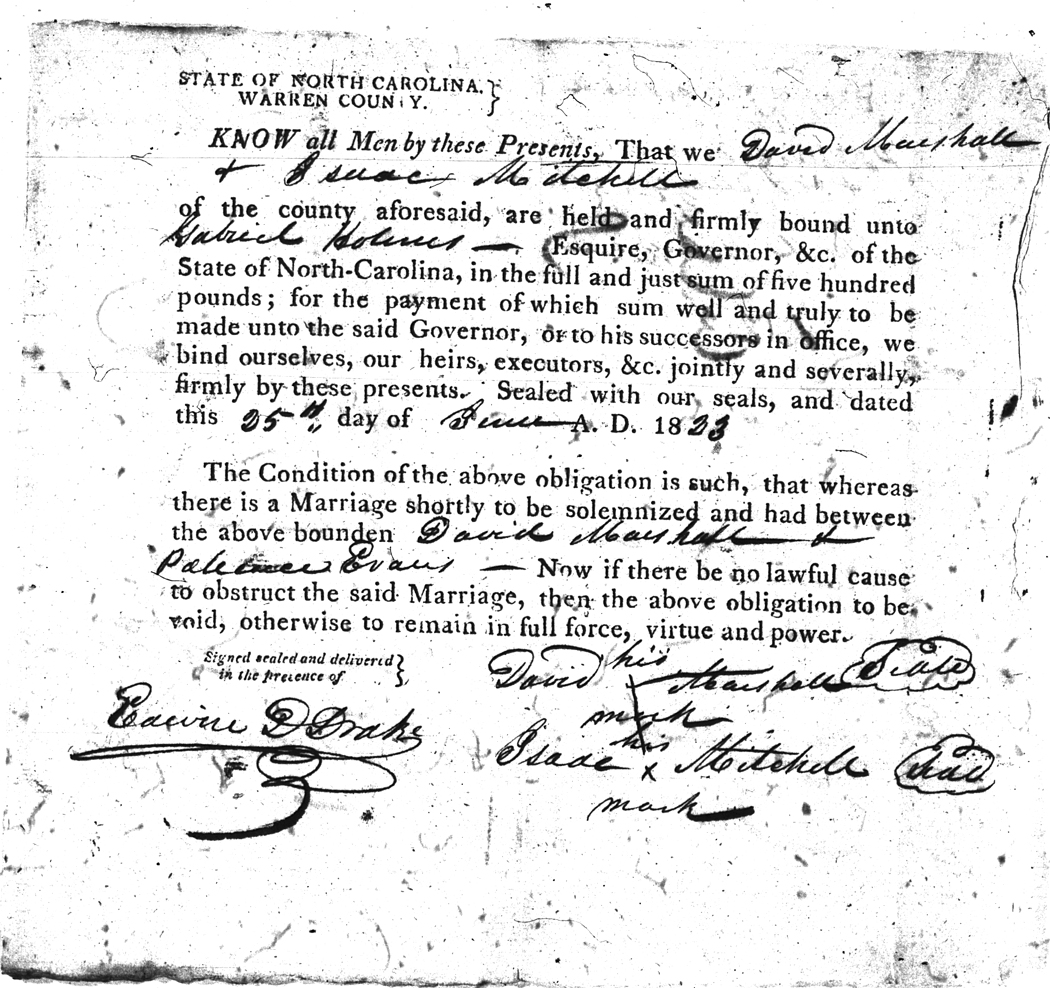 STATE OF NORTH CAROLINA. }
WARREN COUNTY. }
KNOW all Men by these Presents, That we David Marshall
& Isaac Mitchell
of the county aforesaid, are held and firmly bound unto
Gabriel Holmes — Esquire, Governor, &c. of the
State of North-Carolina, in the full and just sum of five hundred
pounds; for the payment of which sum well and truly to be
made unto the said Governor, or to his successors in office, we
bind ourselves, our heirs, executors, &c. jointly and severally,
firmly by these presents. Sealed with our seals, and dated
this 25th day of June A. D. 1823
The Condition of the above obligation is such, that whereas
there is a Marriage shortly to be solemnized and had between
the above bounden David Marshall &
Patience Evans — Now if there be no lawful cause
to obstruct the said Marriage, then the above obligation to be
void, otherwise to remain in full force, virtue and power.
Signed sealed and delivered }
in the presence of }
David his x Marshall Seal
mark
Edwin D Drake
Isaac his x Mitchell Seal
mark